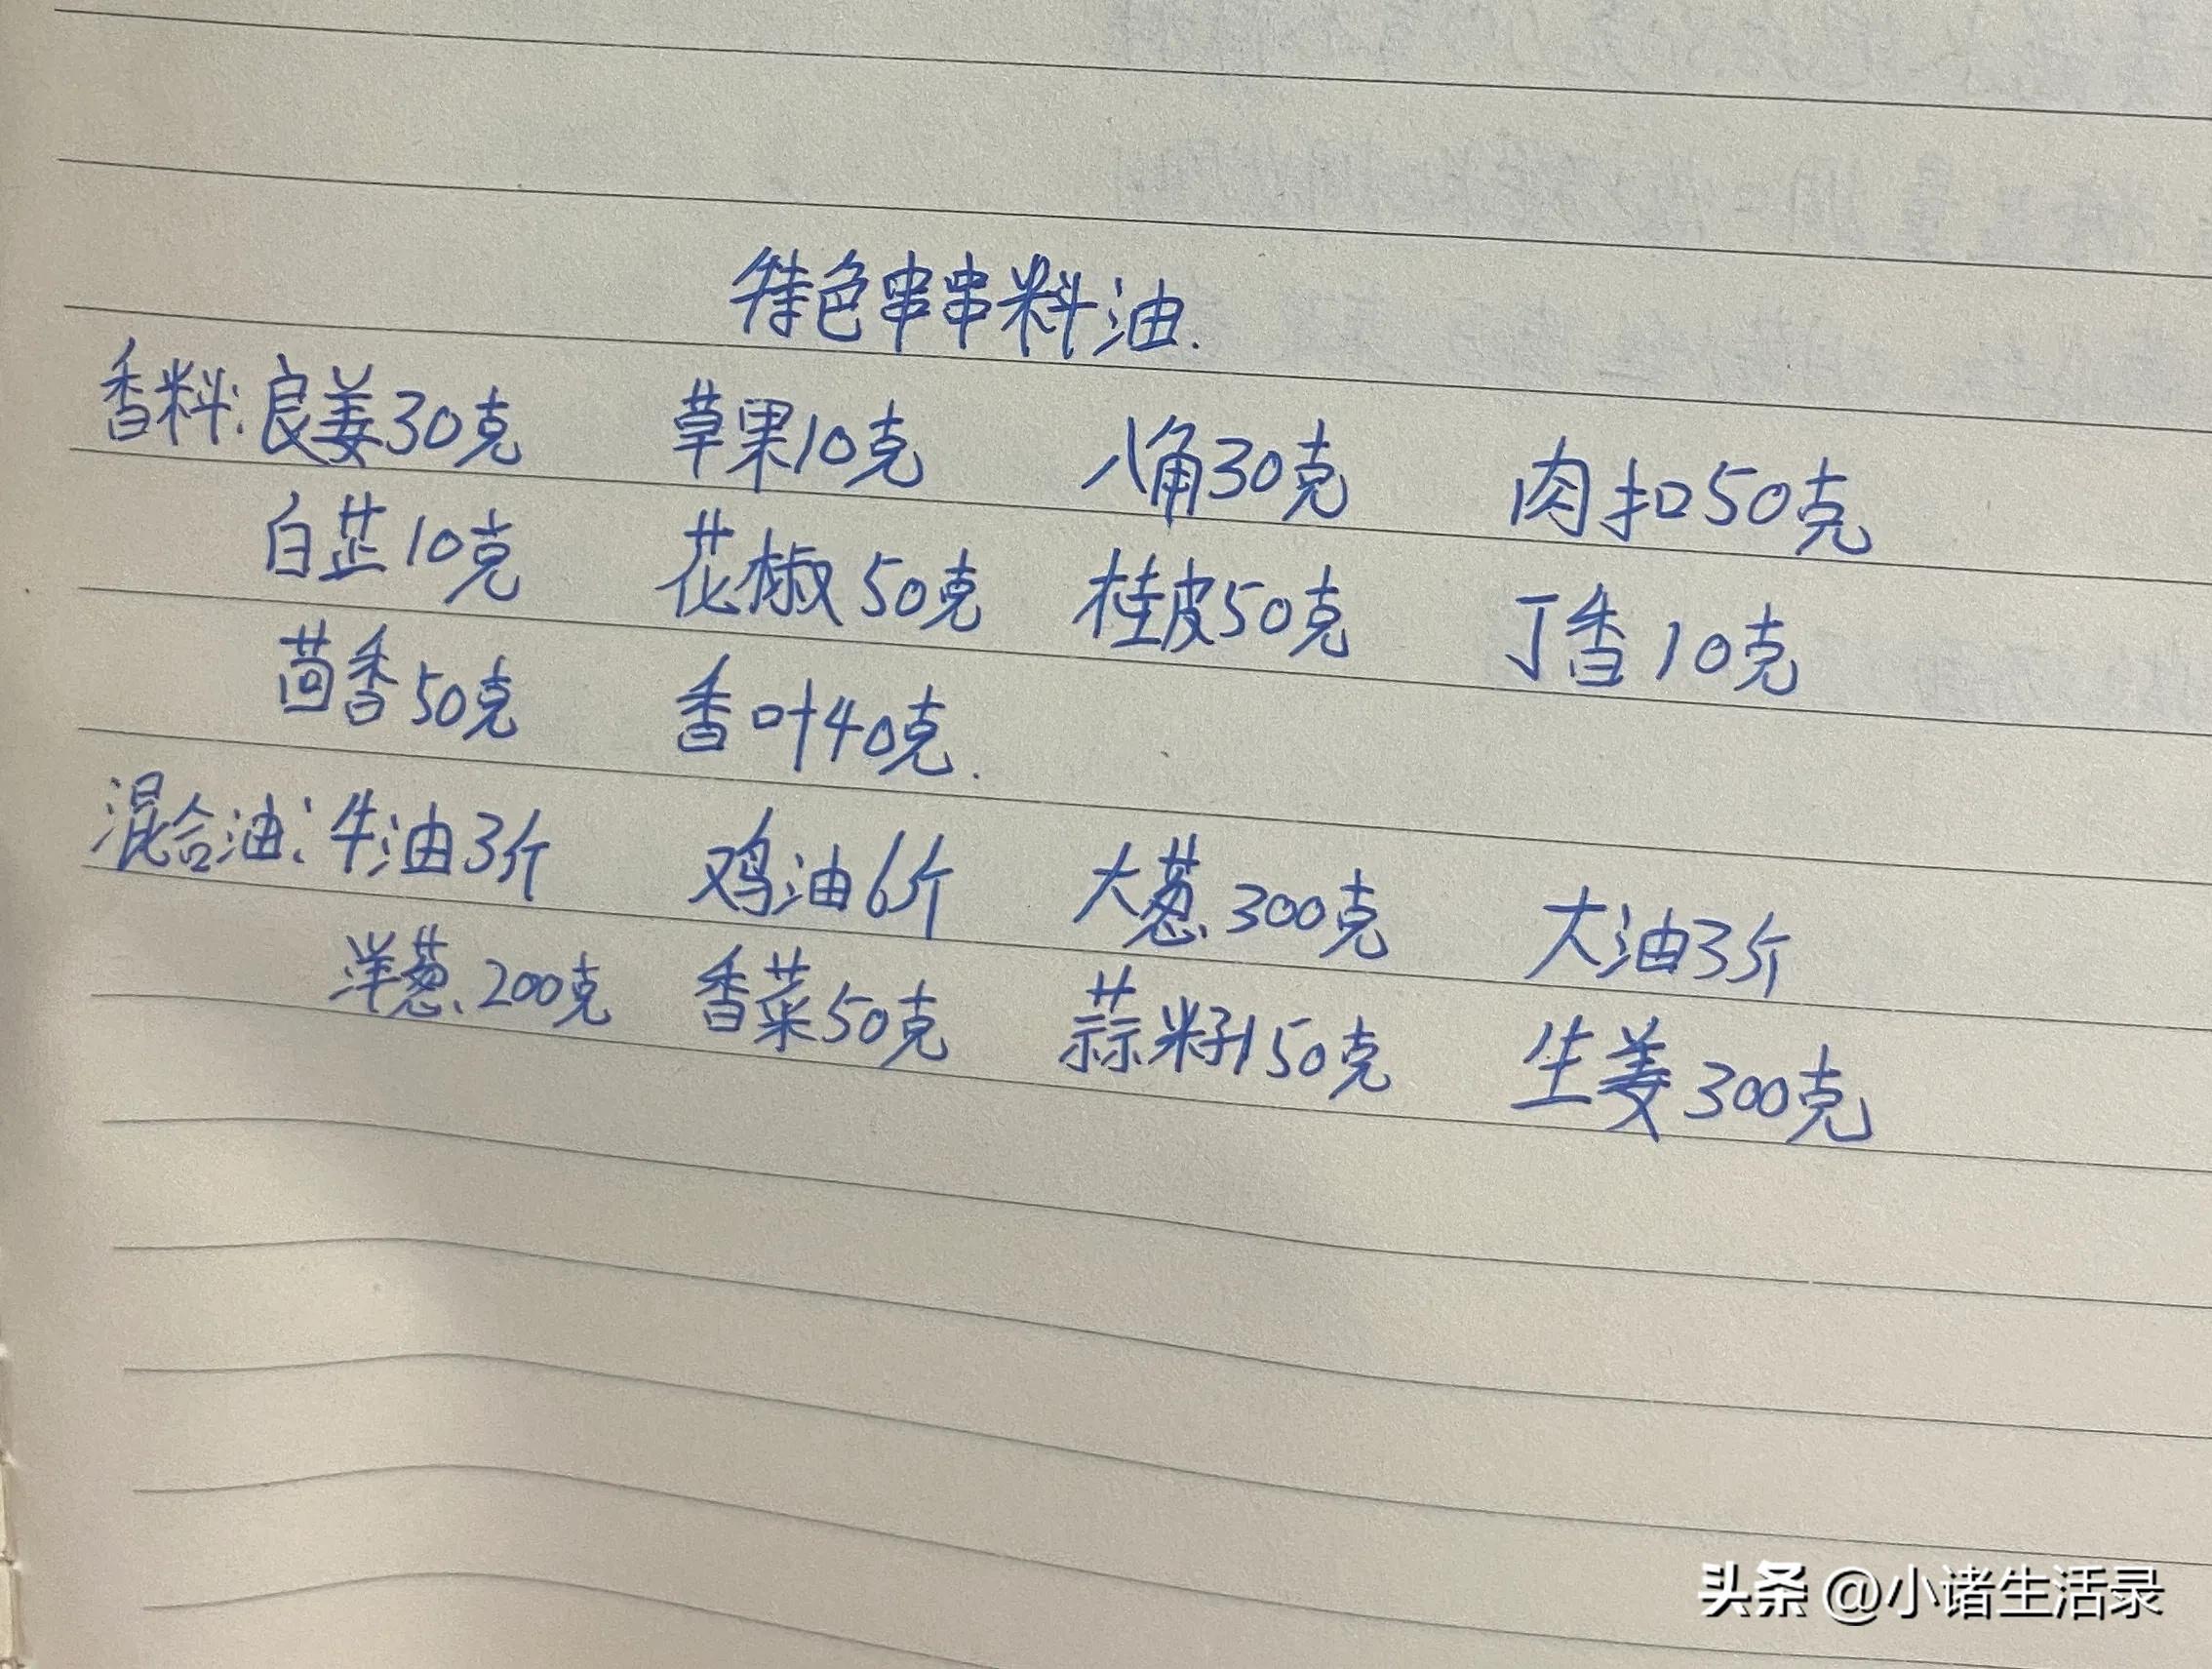 特色串串料油.
香料:良姜30克 草果10克 八角30克 肉扣50克
白芷10克 花椒50克 桂皮50克 丁香10克
茴香50克 香叶40克.
混合油:牛油3斤 鸡油6斤 大葱300克 大油3斤
洋葱200克 香菜50克 蒜籽150克 生姜300克
头条 @小诸生活录